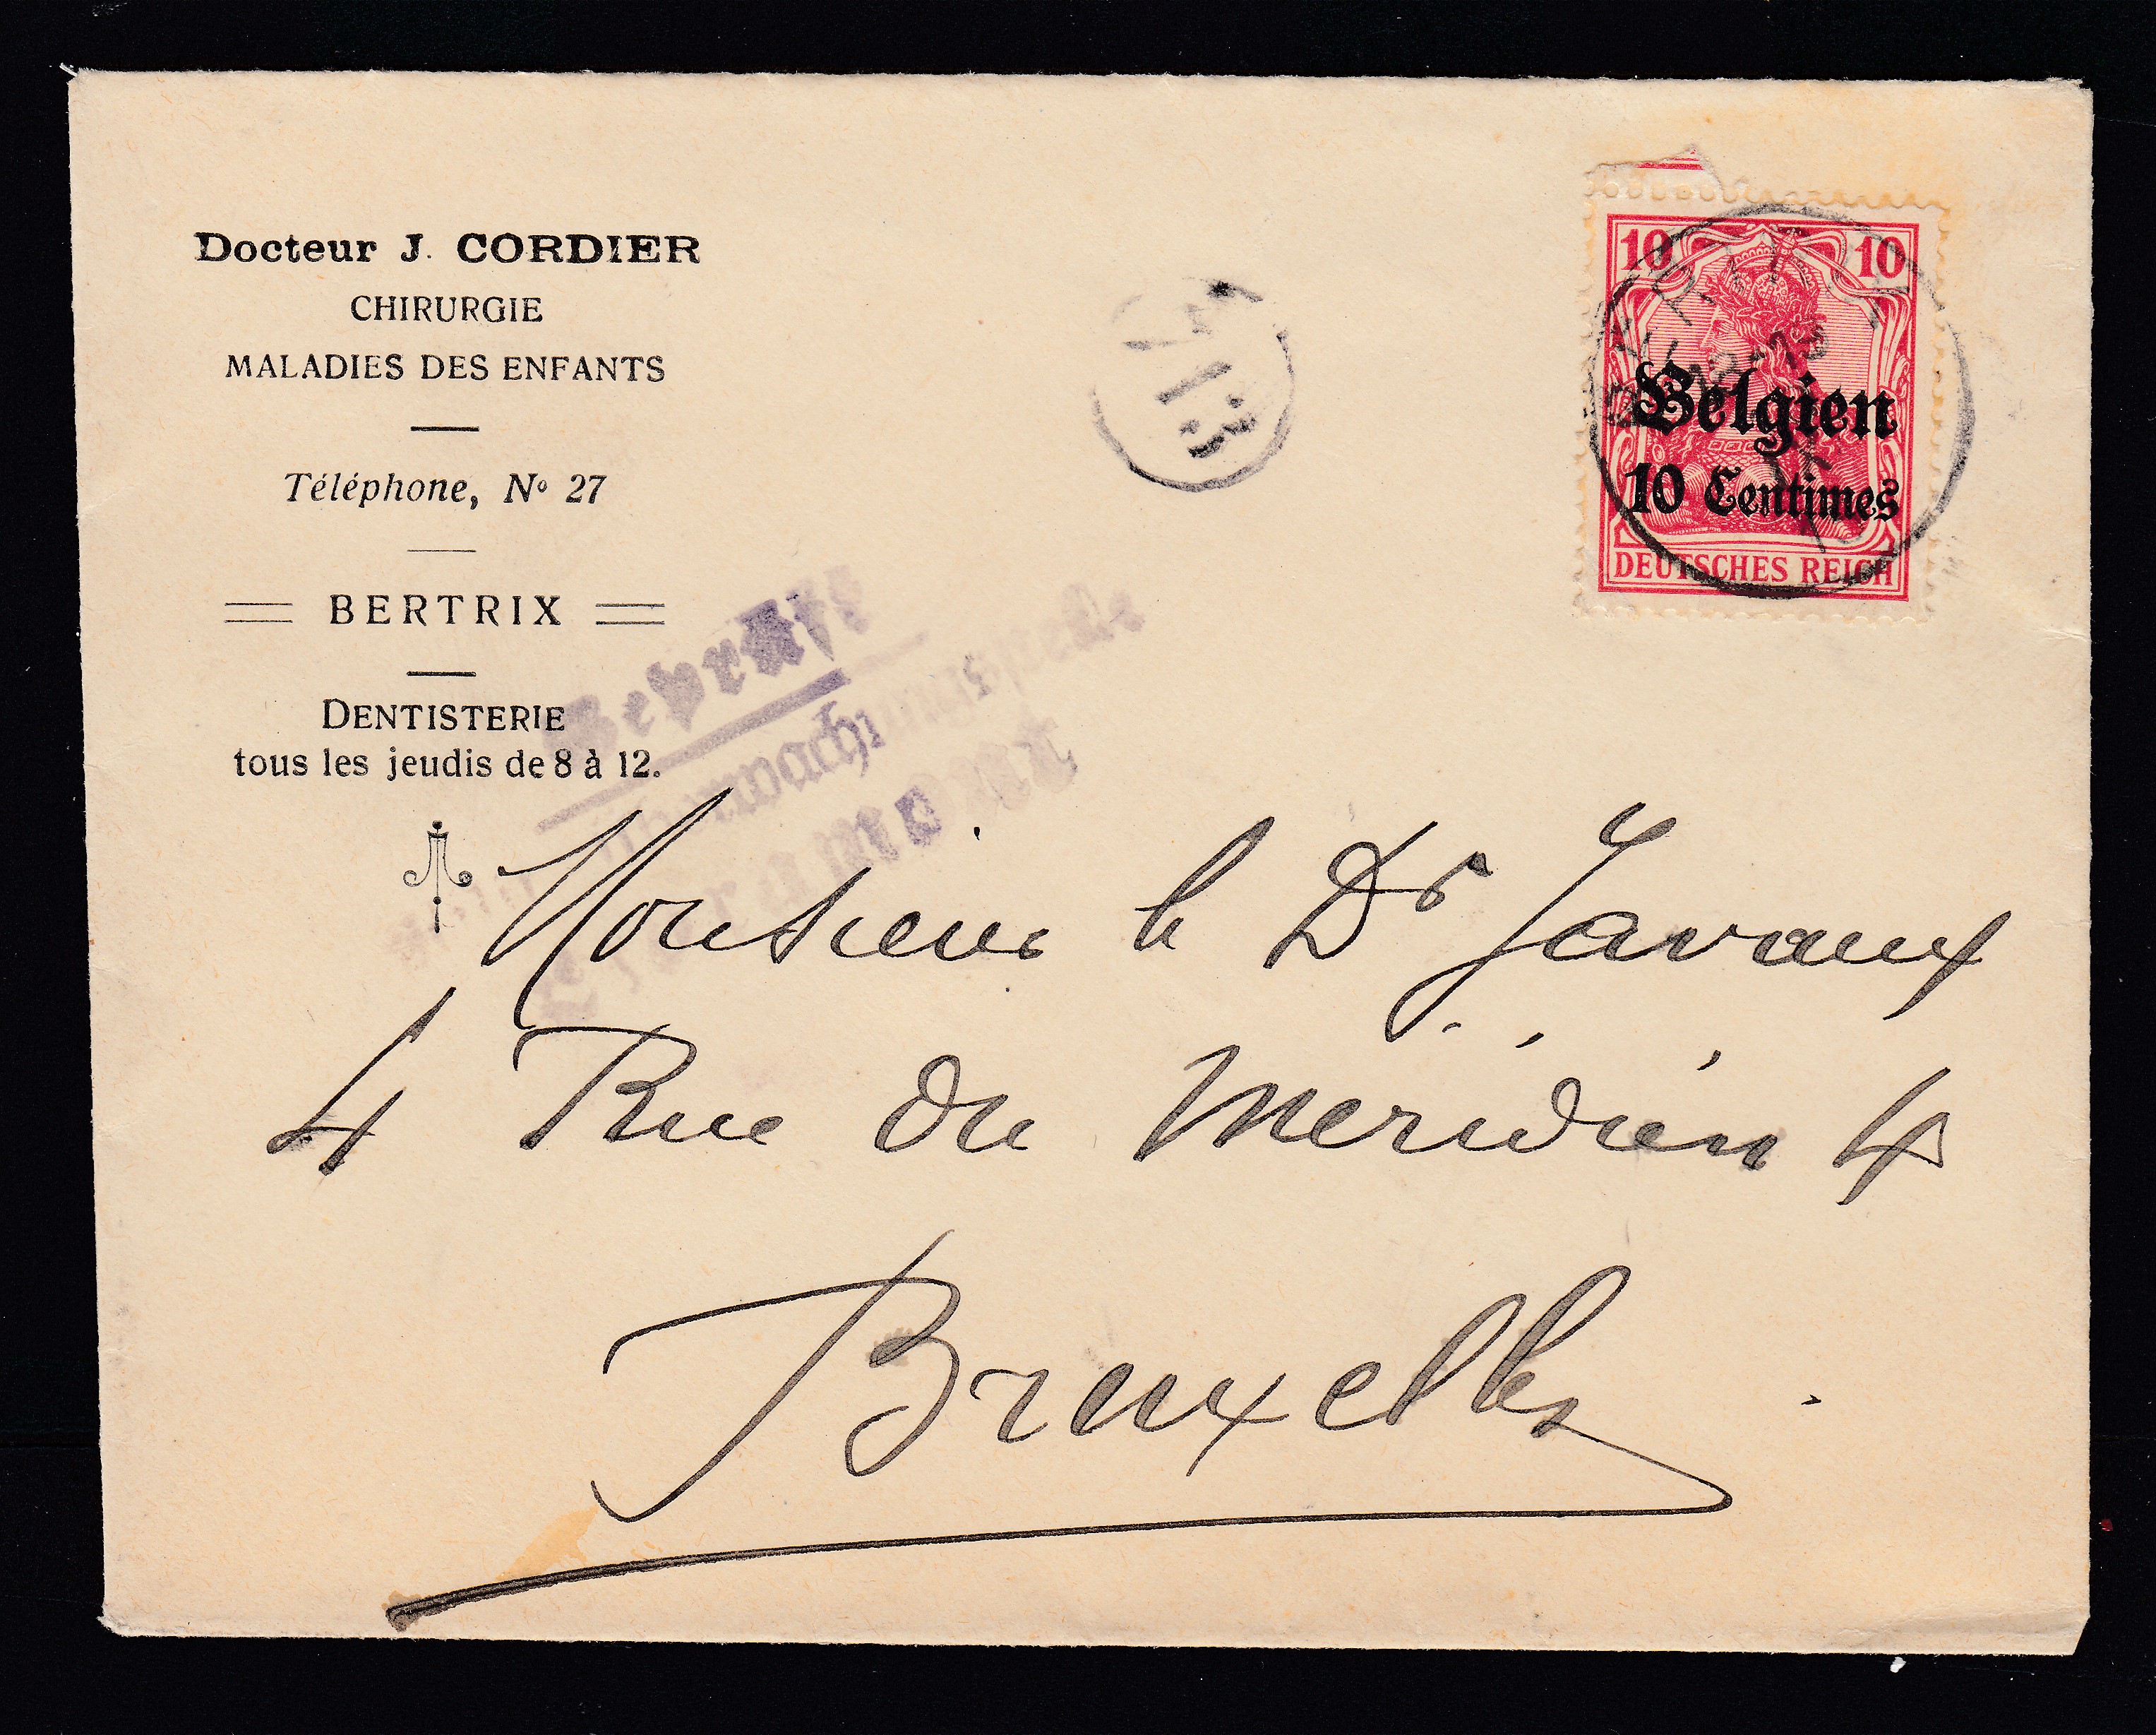 Docteur J. CORDIER
CHIRURGIE
MALADIES DES ENFANTS
Téléphone, No 27
BERTRIX
DENTISTERIE
tous les jeudis de 8 à 12.
10 10
Belgien
10 Centimes
DEUTSCHES REICH
Geprüft
Monsieur le Dr Javaux
4 Rue du Méridien 4
Bruxelles